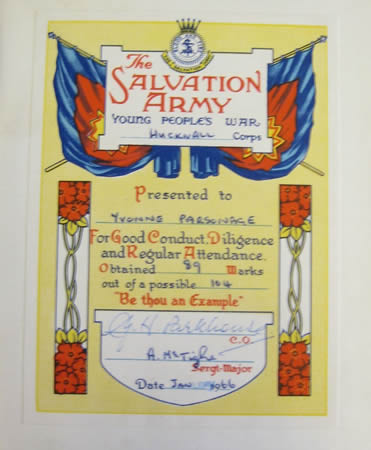 The
SALVATION
ARMY
YOUNG PEOPLE'S WAR
HUCKNALL Corps
Presented to
YVONNE PARSONAGE
For Good Conduct, Diligence
and Regular Attendance.
Obtained 89 Marks
out of a possible 104
"Be thou an Example"
Parkhouse
C.O.
A. McTighe
Sergt-Major
Date Jan 1966